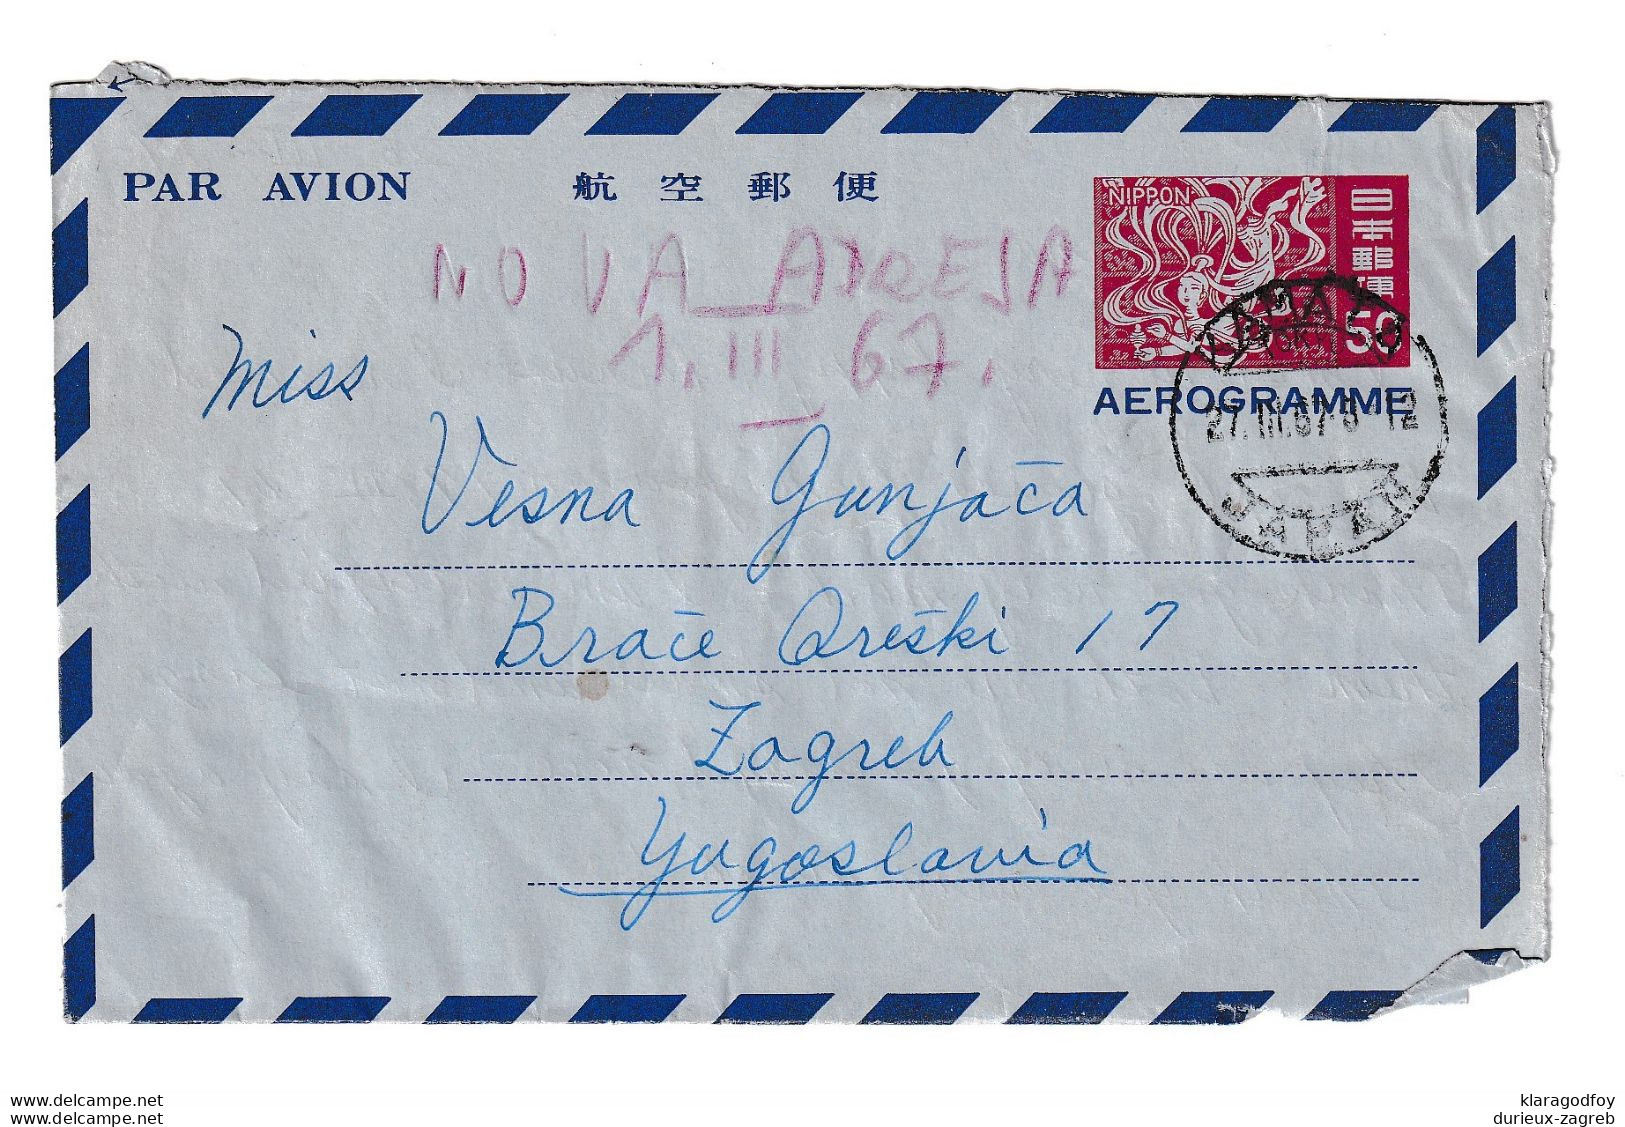 PAR AVION 航空郵便
NIPPON
日本郵便
50
AEROGRAMME
NOVA ADRESA
1. III 67.
27.III.67 8-12
JAPAN
Miss
Vesna Gunjača
Braće Oreški 17
Zagreb
Yugoslavia
delcampe.net
delcampe.net
klaragodfoy
durieux-zagreb